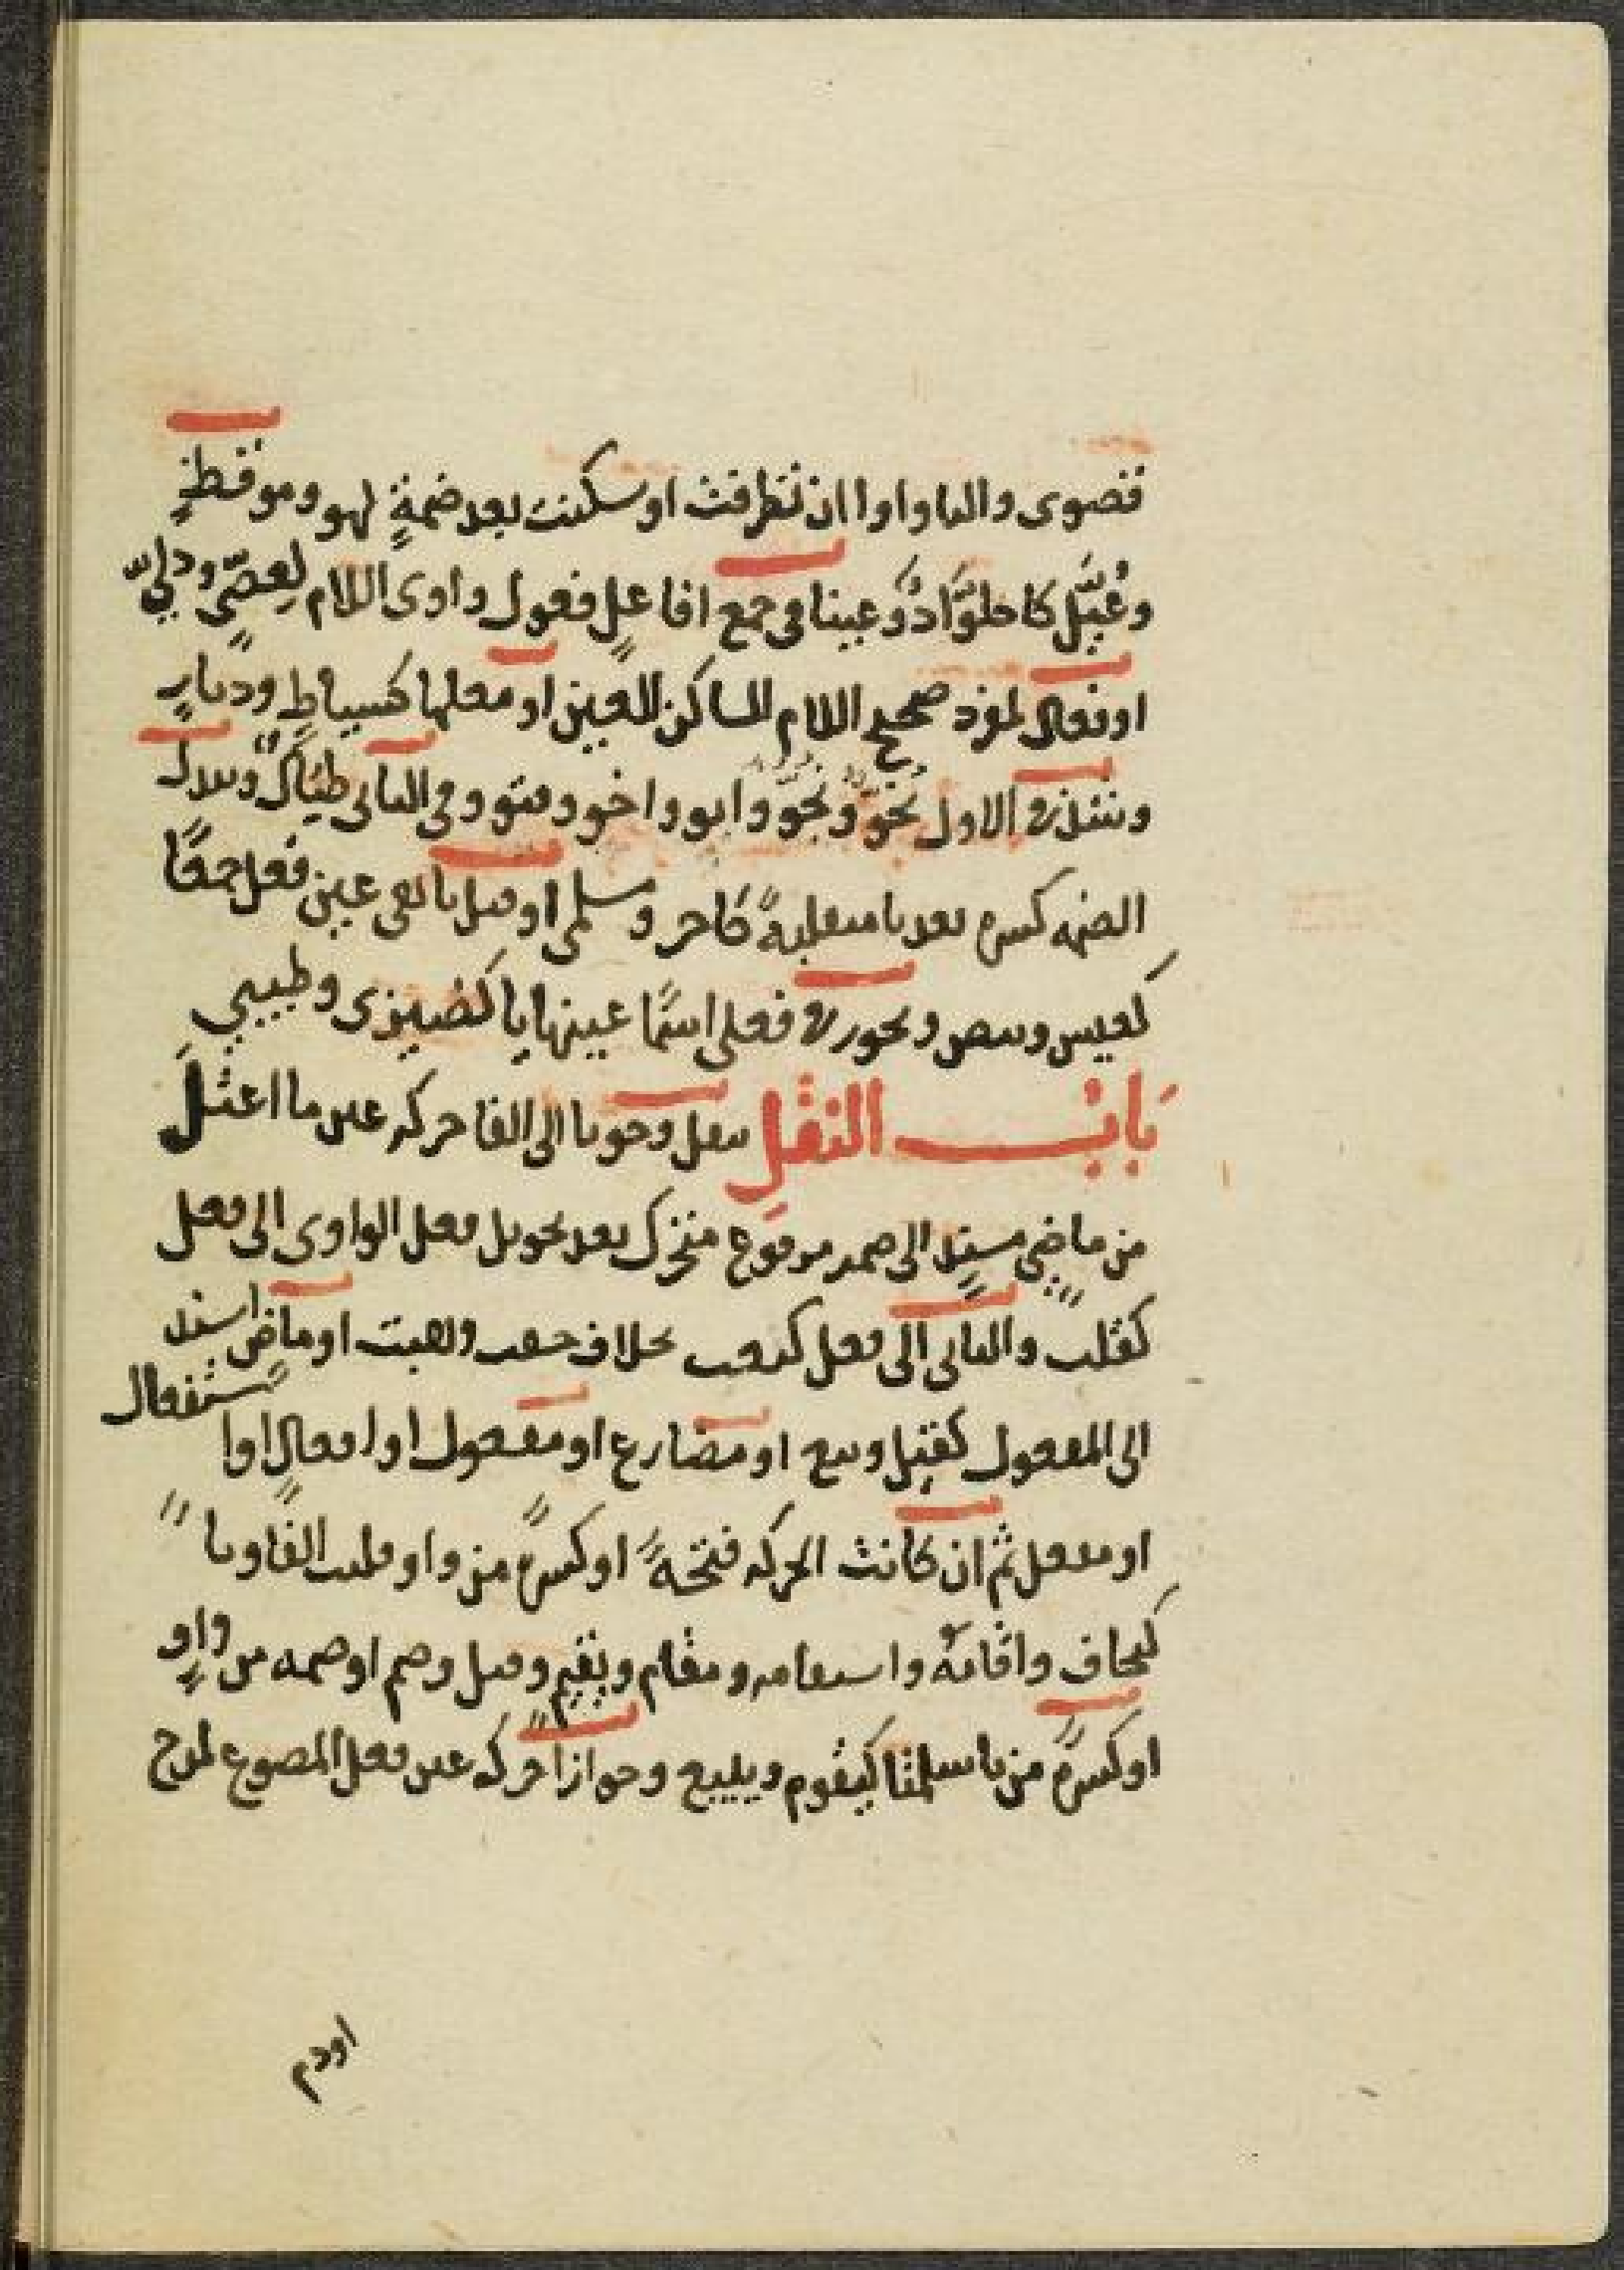 فصوى والىا واوا ان تطرفت او سكنت بعد ضمةٍ لهو وموقظٍ
وعُيَّل كاحلوَّاذوَّ عينا فى جمع افاعل ففعول واوى اللام لِعصّى ودليّ
او فعال لمفرد صحيح اللام الساكن العين او معلها كسياطٍ وديارٍ
وشذ فى الاول نحوّ ونجوّ وابو واخو وفتو وفى الثانى طيال
الضمه كسره بعد يا منقلبةً كاحر وسلمى او قبل يا هى عين فعل جمعًا
كعيس وبيض وبحوز فى فعلى اسمًا عينها يا كضيزى وطيبى
بَاب النقل ينقل وجوبا الى الفا حركه عين ما اعتلّ
من ماضى مسند الى ضمير مرفوع متحرك بعد تحويل فعل الواوى الى فعل
كقلت واليائى الى فعل كبعت بخلاف خفت وهبت او ماضٍ اسند
الى المفعول كقيل وبيع او مضارع او مفعول او افعالٍ او استفعال
او مفعل ثم ان كانت الحركه فتحةً او كسرةً من واو قلبت الفًا ويا
كيخاف واقامة واستقامه ومقام ويقيم وقيل وضم او ضمه من واوٍ
او كسرةً من يا سلمتا كيقوم ويبيع وجوازا حركه عين فعل المصوغ لمدح
او ذم